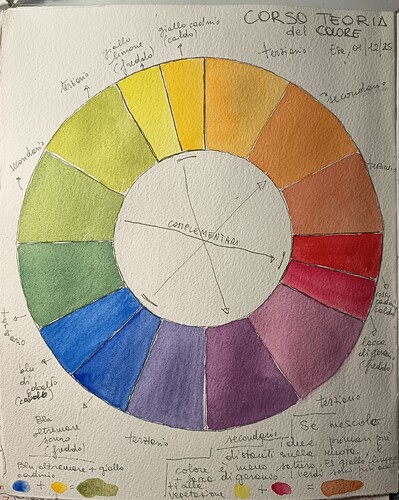 CORSO TEORIA
del COLORE
Ere, 01/12/25
giallo cadmio
(caldo)
giallo
limone
(freddo)
terziario
terziario
secondario
secondario
terziario
COMPLEMENTARI
terziario
rosso
cadmio
(caldo)
lacca di geranio
(freddo)
blu
di
cobalto
(caldo)
Blu
oltremare
(freddo)
terziario
terziario
secondario
Se mescolo
i due primari più
distanti sulla ruota,
colore è meno saturo. Es giallo limone
+ lacca di geranio
vegetazione
Blu oltremare + giallo
cadmio
+
+